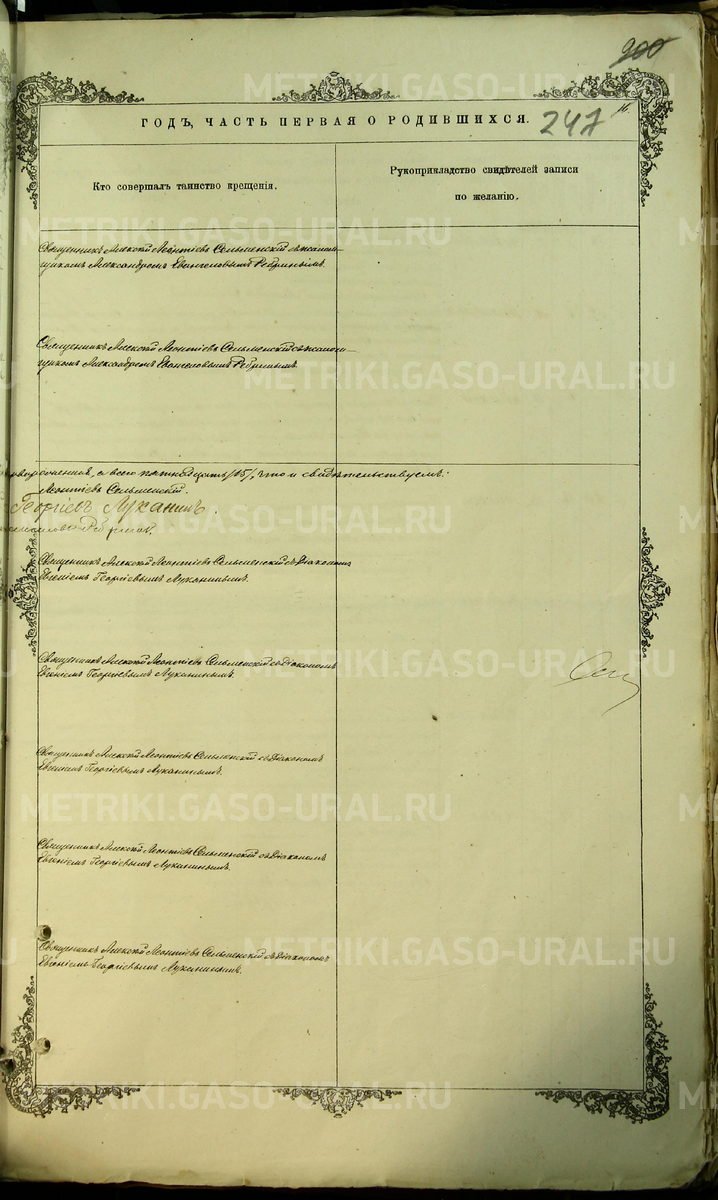 200
ГОДЪ, ЧАСТЬ ПЕРВАЯ О РОДИВШИХСЯ.
247
Кто совершалъ таинство крещенія.
Рукоприкладство свидѣтелей записи
по желанію.
Священникъ Алексѣй Леонтіевъ Сельменскій съ псалом-
щикомъ Александромъ Евангеловымъ
Священникъ Алексѣй Леонтіевъ Сельменскій съ псалом-
щикомъ Александромъ Евангеловымъ
а всего пятнадцать /15/, что и свидѣтельствуемъ:
Леонтіевъ Сельменскій.
Георгіевъ Луканинъ.
Священникъ Алексѣй Леонтіевъ Сельменскій съ Діакономъ
Евгеніемъ Георгіевымъ Луканинымъ.
Священникъ Алексѣй Леонтіевъ Сельменскій съ Діакономъ
Евгеніемъ Георгіевымъ Луканинымъ.
Священникъ Алексѣй Леонтіевъ Сельменскій съ Діакономъ
Евгеніемъ Георгіевымъ Луканинымъ.
Священникъ Алексѣй Леонтіевъ Сельменскій съ Діакономъ
Евгеніемъ Георгіевымъ Луканинымъ.
Священникъ Алексѣй Леонтіевъ Сельменскій съ Діакономъ
Евгеніемъ Георгіевымъ Луканинымъ.
METRIKI.GASO-URAL.RU